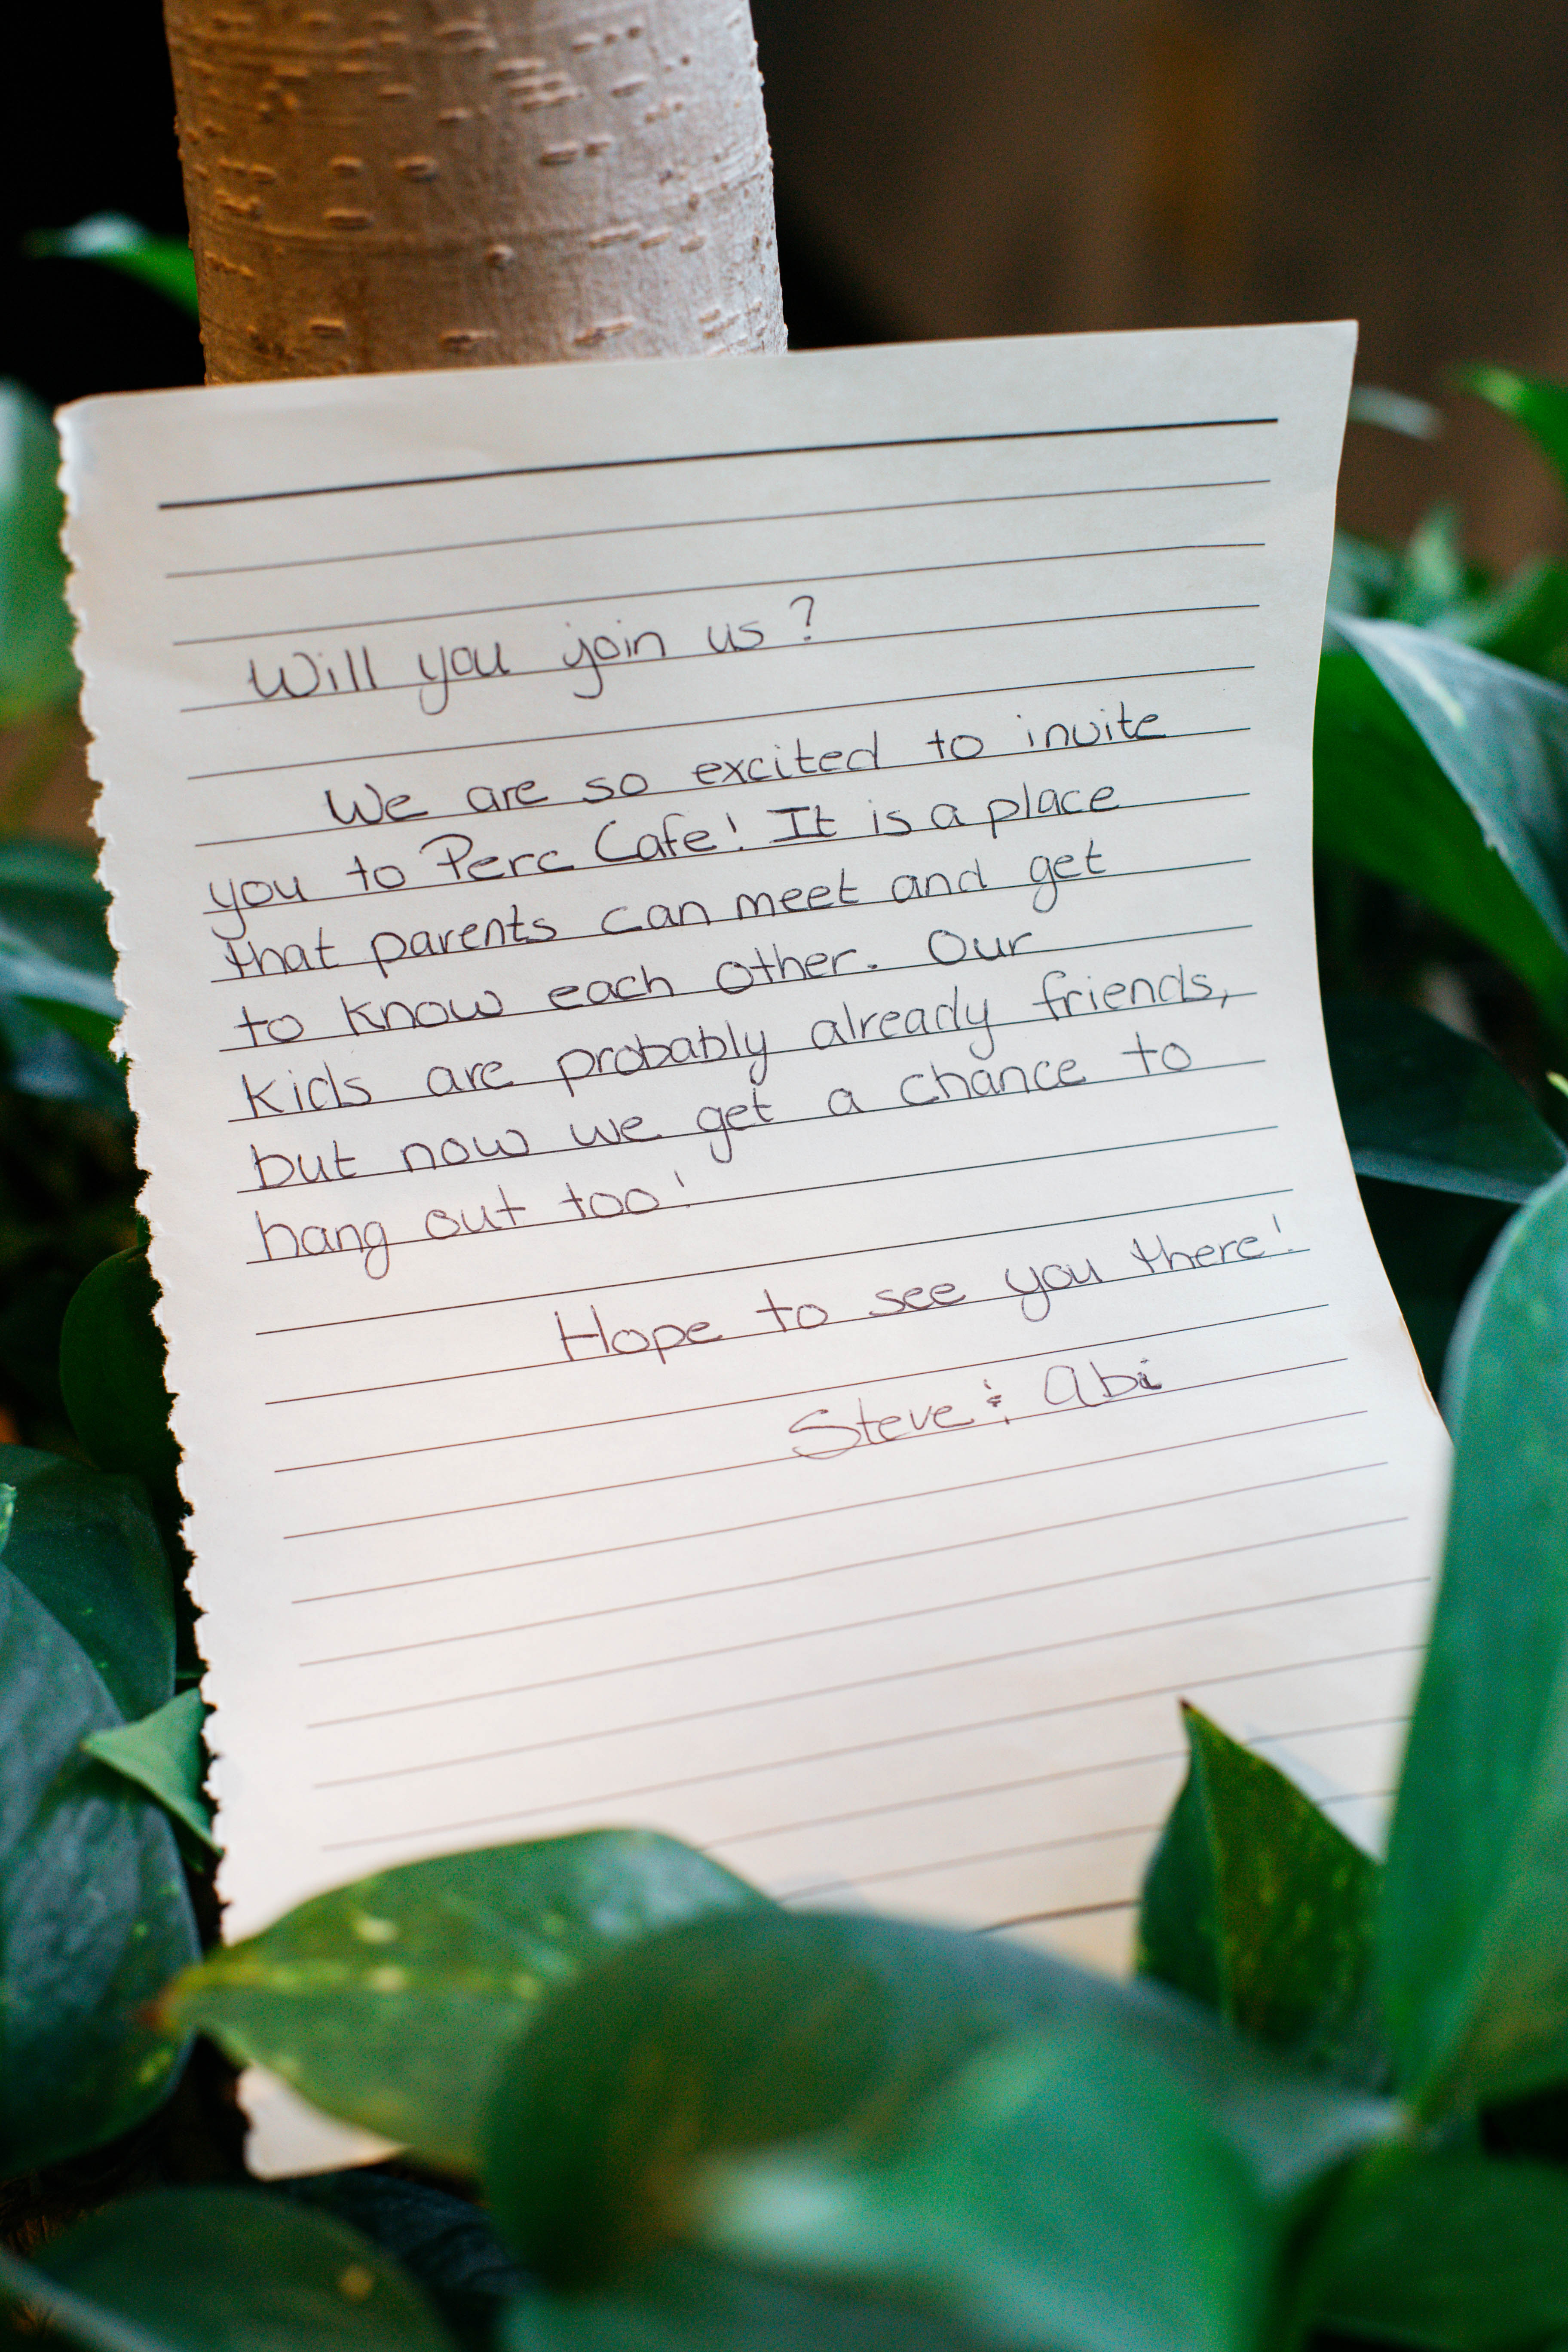 Will you join us?
We are so excited to invite
you to Perc Cafe! It is a place
that parents can meet and get
to know each other. Our
kids are probably already friends,
but now we get a chance to
hang out too!
Hope to see you there!
Steve & Abi